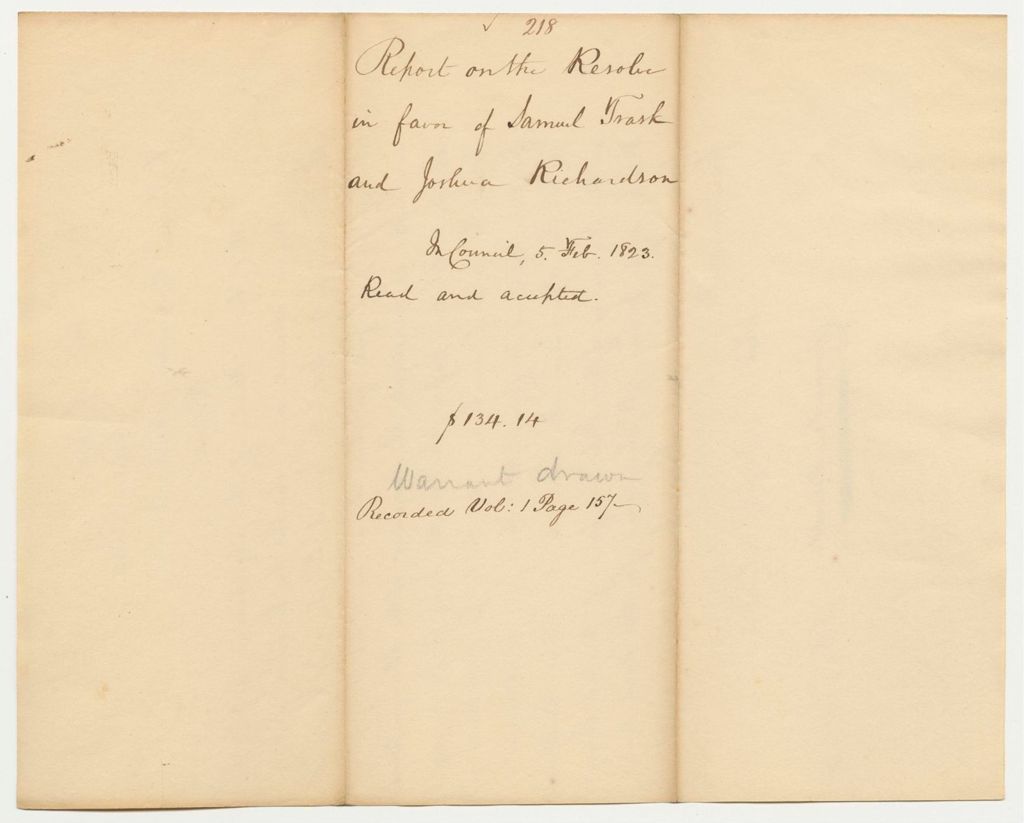 ✓ 218
Report on the Resolve
in favor of Samuel Trask
and Joshua Richardson
In Council, 5. Feb. 1823.
Read and accepted.
$134.14
Warrant drawn
Recorded Vol: 1 Page 157